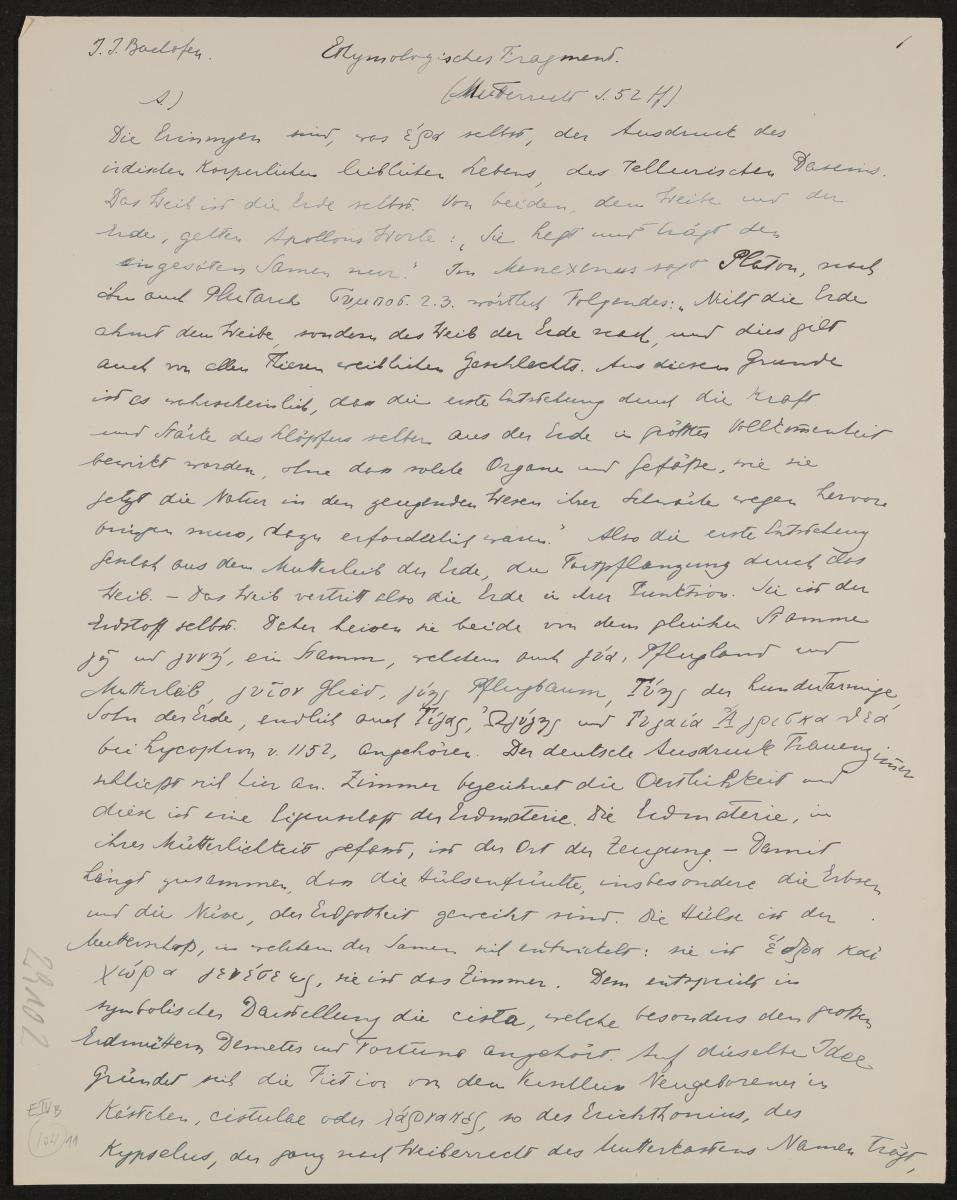 J. J. Bachofen. Ethymologisches Fragment. 1
A.) (Mutterrecht S. 52 ff)
Die Erinnyen sind, was ἔρα selbst, der Ausdruck des
irdischen Körperlichen leiblichen Lebens, des Tellurischen Daseins.
Das Weib ist die Erde selbst. Von beiden, dem Weibe und der
Erde, gelten Apollons Worte: „Sie hegt und trägt den
eingesäten Samen nur." Im Menexenus sagt Platon, nach
ihm auch Plutarch Συμποσ. 2.3. wörtlich Folgendes: „Nicht die Erde
ahmt dem Weibe, sondern das Weib der Erde nach, und dies gilt
auch von allen Tieren weiblichen Geschlechts. Aus diesem Grunde
ist es wahrscheinlich, dass die erste Entstehung durch die Kraft
und Stärke des Schöpfers selber aus der Erde in größter Vollkommenheit
bewirkt worden, ohne dass solche Organe und Gefäße, wie sie
jetzt die Natur in den zeugenden Wesen ihrer Schwäche wegen hervor
bringen muss, dazu erforderlich waren." Also die erste Entstehung
geschah aus dem Mutterleib der Erde, die Fortpflanzung durch das
Weib. – Das Weib vertritt also die Erde in ihrer Funktion. Sie ist der
Erdstoff selbst. Daher heissen sie beide von dem gleichen Stamme
γῆ und γυνή, ein Stamm, welchem auch γύα, Pflugland und
Mutterleib, γυῖον Glied, γύης Pflugbaum, Γύης der hundertarmige,
Sohn der Erde, endlich auch Γύγας, Ὠγύγης und Γυγαία
bei Lycophron v. 1152, angehören. Der deutsche Ausdruck Frauenzimmer
schließt sich hier an. Zimmer bezeichnet die Oertlichkeit und
diese ist eine Eigenschaft der Erdmaterie. Die Erdmaterie, in
ihrer Mütterlichkeit gefasst, ist der Ort der Zeugung. – Damit
hängt zusammen, dass die Hülsenfrüchte, insbesondere die Erbsen
und die Nüsse, der Erdgottheit geweiht sind. Die Hülse ist der
Mutterschoß, in welchem der Samen sich entwickelt: sie ist ἕδρα καὶ
χώρα γενέσεως, sie ist das Zimmer. Dem entspricht in
symbolischer Darstellung die cista, welche besonders den großen
Erdmüttern Demeter und Fortuna angehört. Auf dieselbe Idee
gründet sich die Fiction von dem Neugeborener in
Kästchen, cistulae oder λάρνακες, so des Erichthonius, des
Kypselus, der ganz nach Weiberrecht des Mutterkastens Namen trägt,
29102
E IV B
104 11